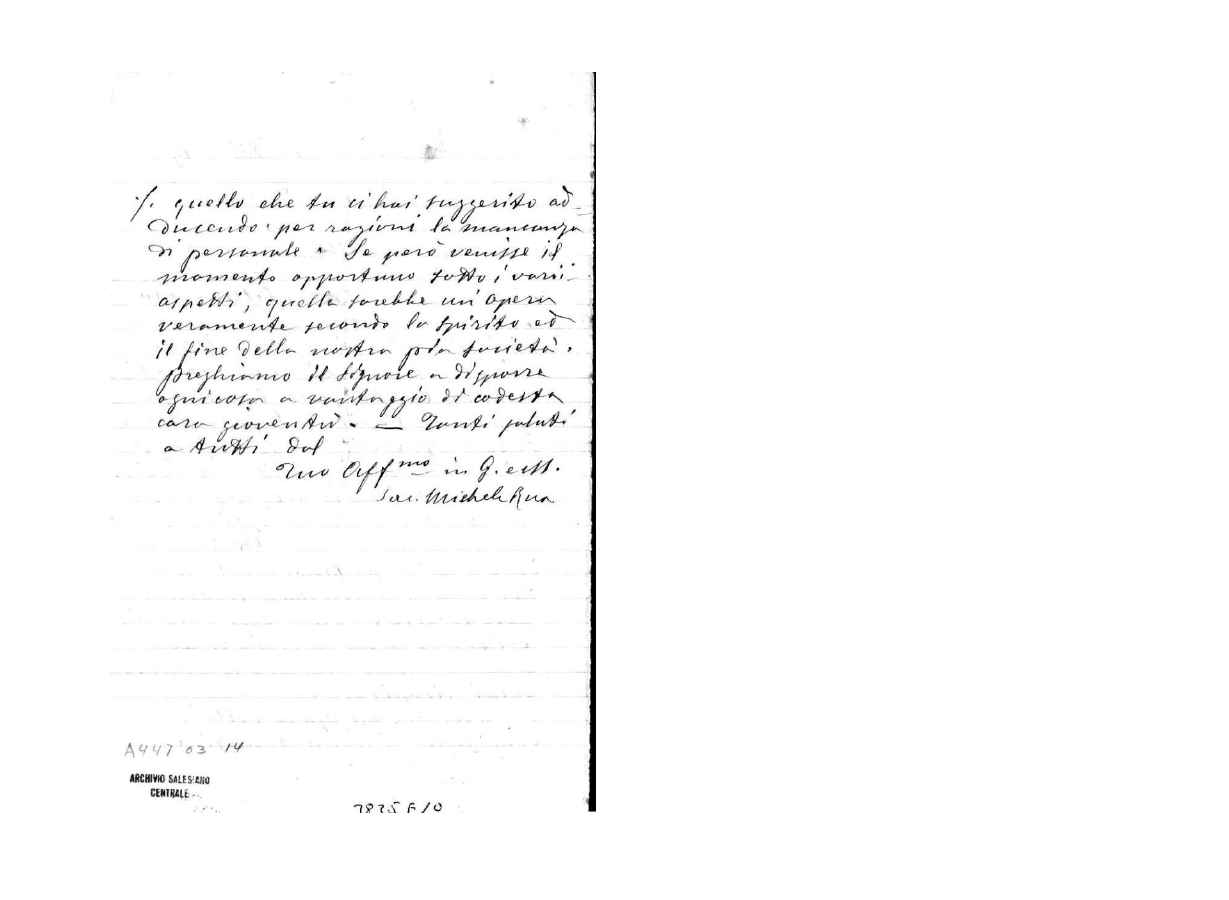 ./. quello che tu ci hai suggerito ad-
ducendo per ragioni la mancanza
di personale. Se però venisse il
momento opportuno sotto i varii
aspetti, quella sarebbe un'opera
veramente secondo lo spirito ed
il fine della nostra pia società.
preghiamo il Signore a disporre
ogni cosa a vantaggio di codesta
cara gioventù. — Tanti saluti
a tutti dal
Tuo Aff.mo in G. e M.
Sac. Michele Rua
A447 03 14
ARCHIVIO SALESIANO
CENTRALE